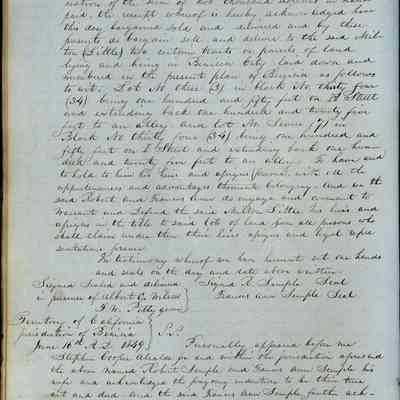 sideration of the sum of hundred dollars in hand
paid, the receipt whereof is hereby acknowledged have
this day bargained sold and delivered and by these
presents do bargain sell and deliver to the said Mil-
ton Little two certain tracts or parcels of land
lying and being in Benicia City laid down and
numbered in the present plan of Benicia as follows
to wit. Lot No three (3) in block No thirty four
(34) being one hundred and fifty feet on Street
and extending back one hundred and twenty five
feet to an alley and lot No Seven (7) in
Block No thirty four (34) being one hundred and
fifty feet on Street and extending back one hun-
dred and twenty five feet to an alley. To have and
to hold to him his heirs and assigns forever with all the
appurtenances and advantages thereunto belonging. And we the
said Robert and Frances Ann do engage and covenant to
Warrant and Defend the said Milton Little his heirs and
assigns in the title to said lots of land from all persons who
shall claim under them their heirs assigns and legal repre
sentatives forever.
In testimony whereof we have hereunto set our hands
and seals on the day and date above written.
Signed Sealed and delivered Signed R. Semple Seal
in presence of Albert G. Wilson Frances Ann Semple Seal
F. W. Pettygrove
Territory of California
jurisdiction of Benicia
June 16th A.D. 1849 Personally appeared before me
Stephen Cooper Alcalde for and within the jurisdiction aforesaid
the above named Robert Semple and Frances Ann Semple his
wife and acknowledged the foregoing indenture to be their true
act and deed. And the said Frances Ann Semple further ack-